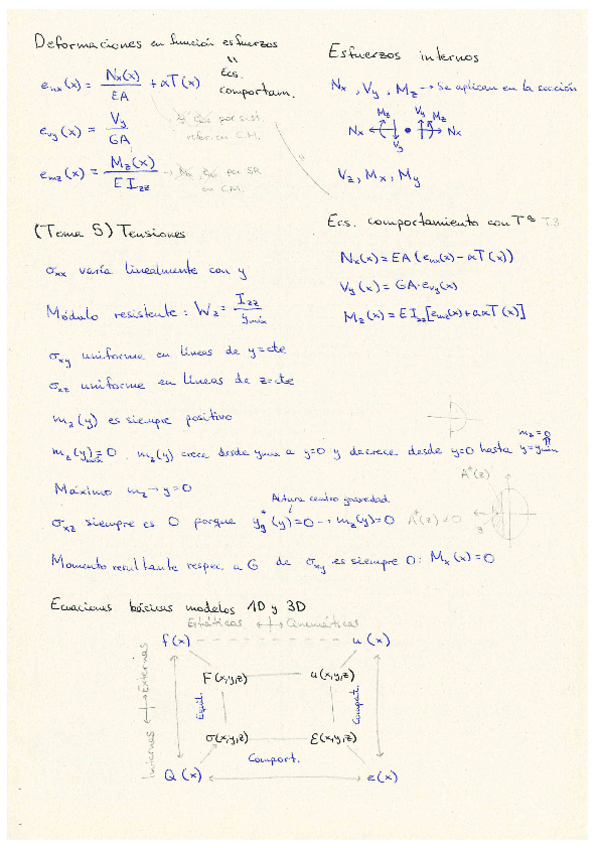 Deformaciones en función esfuerzos
"
Ecs.
comportam.
e_nx(x) = N_x(x)/EA + αT(x)
e_vy(x) = V_y/GA
por sist.
refer. en C.M.
e_mz(x) = M_z(x)/E I_zz
por SR
en C.M.
Esfuerzos internos
N_x, V_y, M_z → Se aplican en la sección
M_z V_y M_z
N_x N_x
V_y
V_z, M_x, M_y
(Tema 5) Tensiones
σ_xx varía linealmente con y
Módulo resistente: W_z = I_zz/y_máx
σ_xy uniforme en líneas de y=cte
σ_xz uniforme en líneas de z=cte
m_z(y) es siempre positivo
Ecs. comportamiento con Tª T.3
N_x(x) = EA(e_nx(x) - αT(x))
V_y(x) = GA·e_vy(x)
M_z(x) = E I_zz[e_mz(x) + aαT(x)]
m_z(y)=0. m_z(y) crece desde y_máx a y=0 y decrece desde y=0 hasta y=y_mín
m_z=0
Máximo m_z → y=0
Altura centro gravedad
A*(z)
σ_xz siempre es 0 porque y_g*(y)=0 → m_z(y)=0 A*(z)≠0
Momento resultante respec. a G de σ_xy es siempre 0: M_x(x)=0
Ecuaciones básicas modelos 1D y 3D
Estáticas Cinemáticas
f(x) u(x)
F(x,y,z) u(x,y,z)
Internas Externas
Equil.
Compat.
σ(x,y,z) ε(x,y,z)
Comport.
Q(x) e(x)